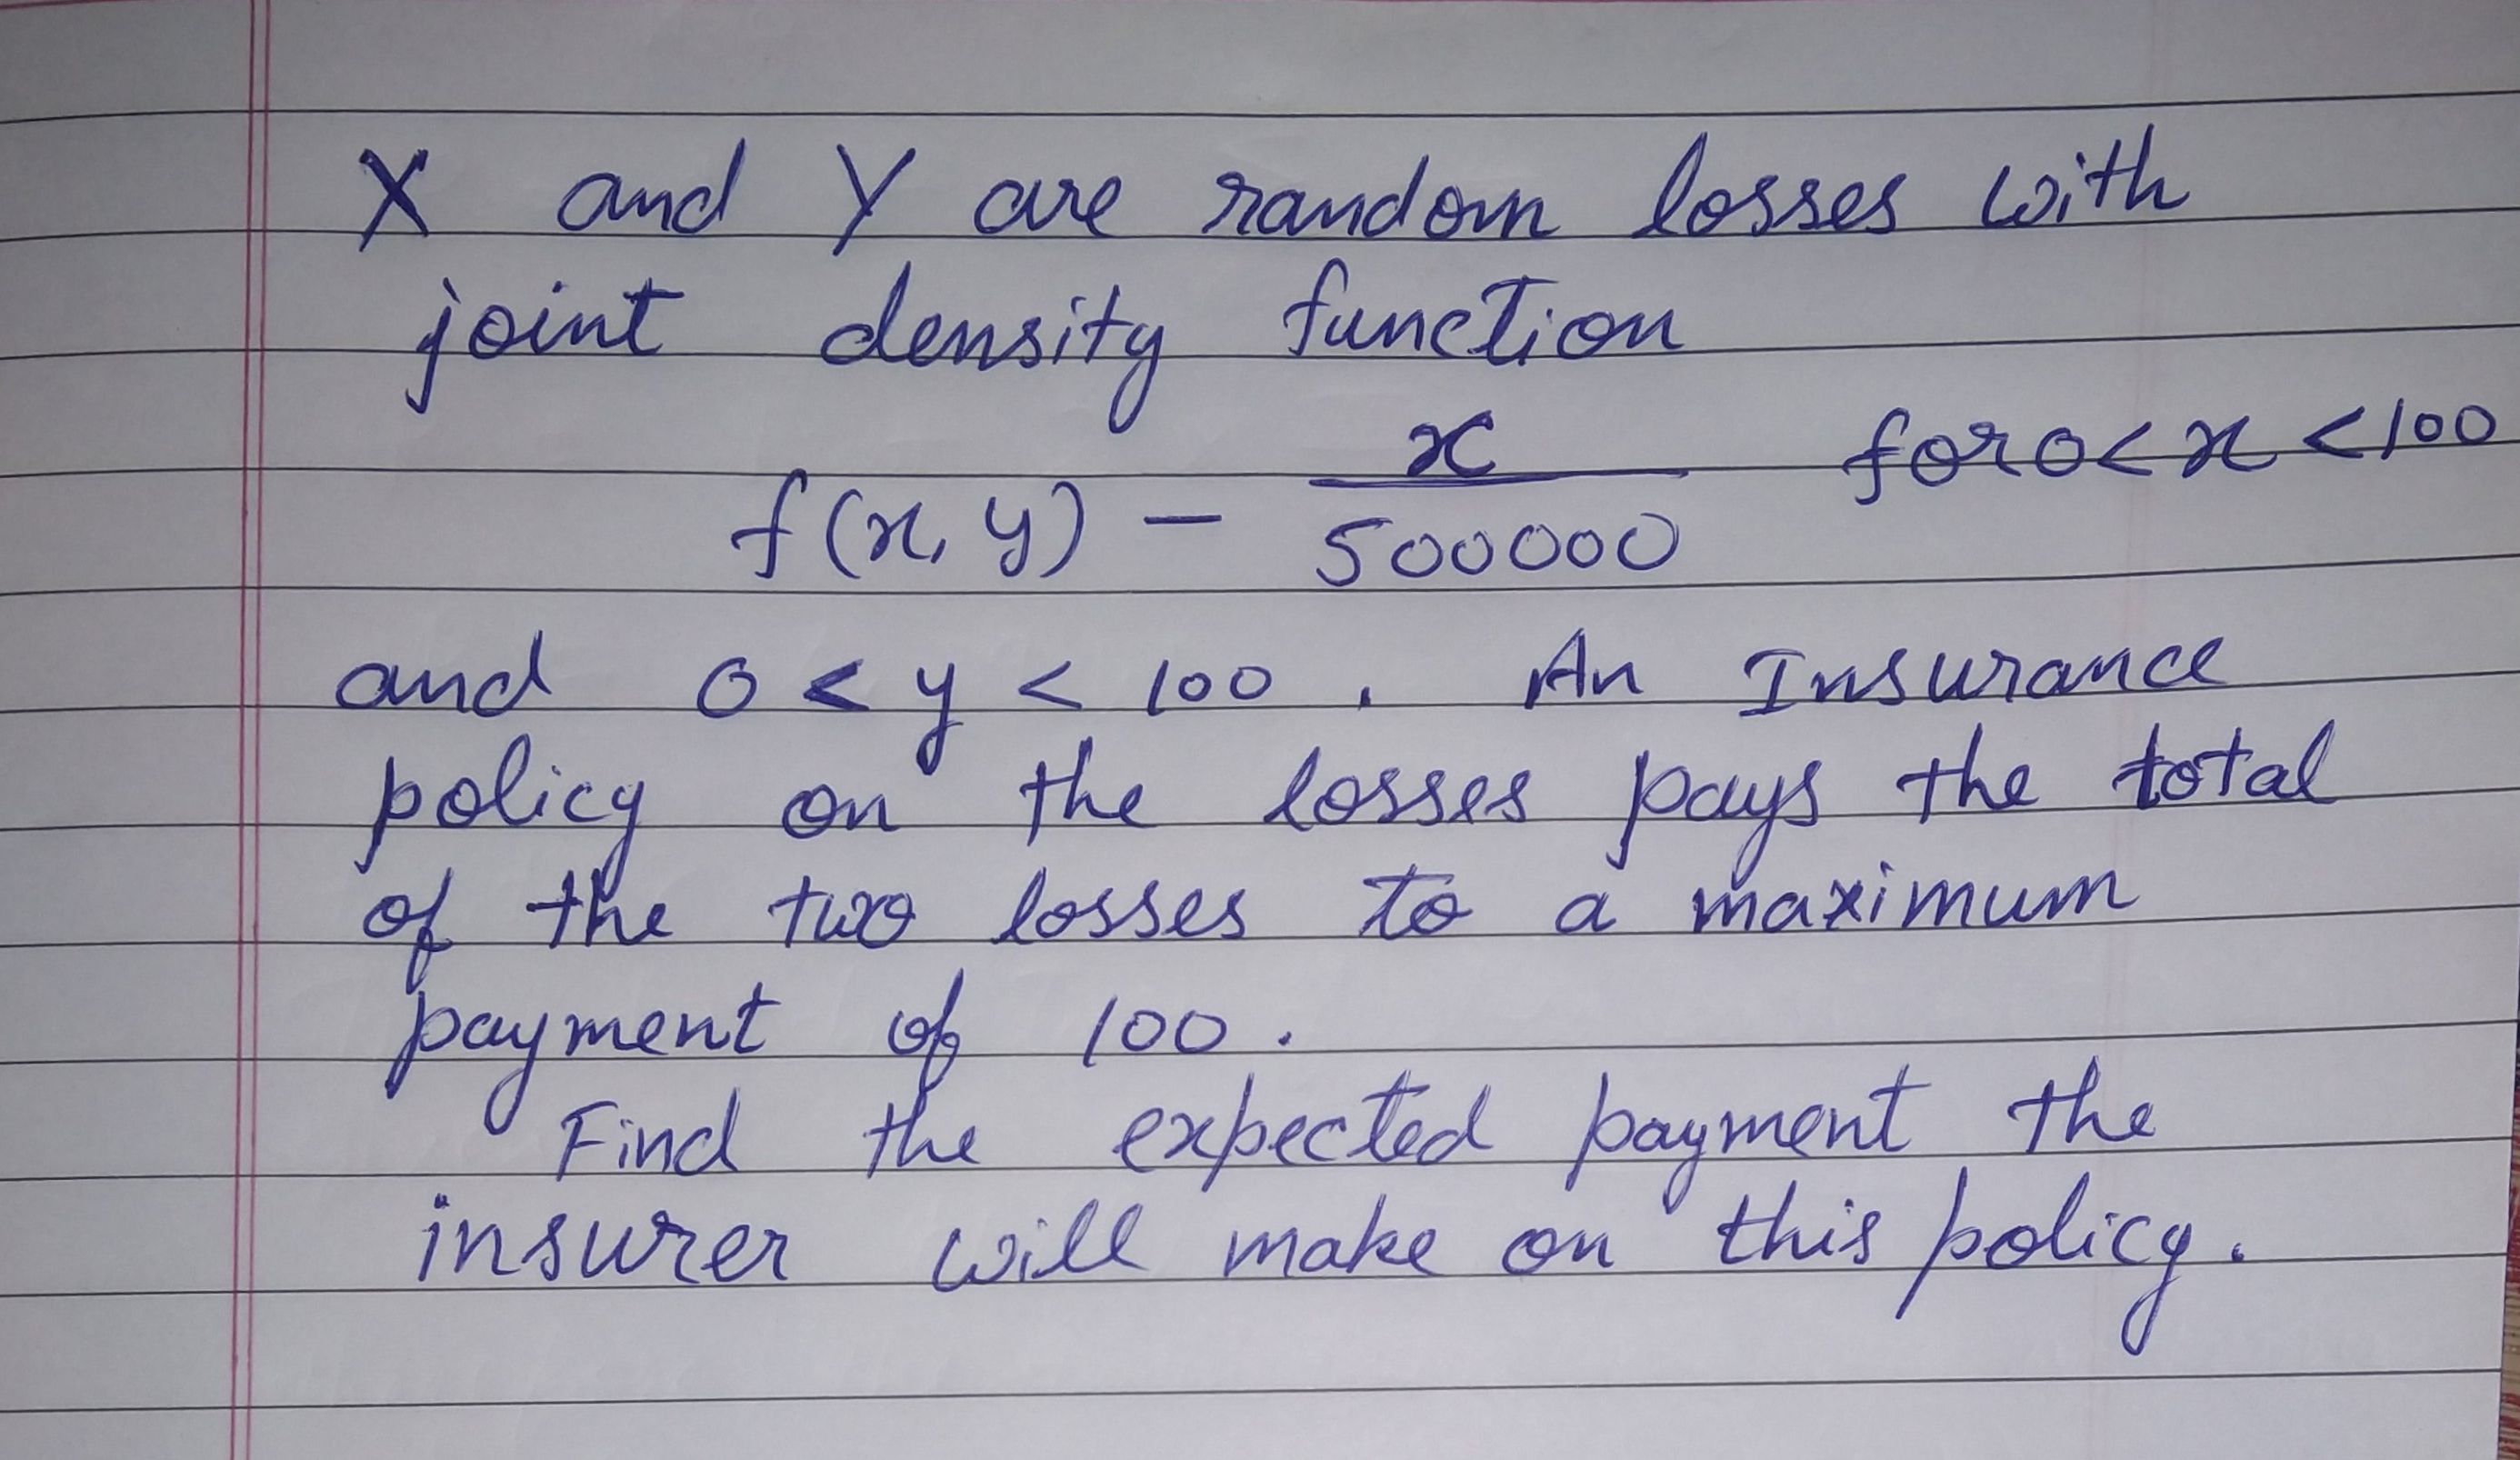 X and Y are random losses with
joint density function
f(x, y) - x/500000 for 0<x<100
and 0 < y < 100 . An Insurance
policy on the losses pays the total
of the two losses to a maximum
payment of 100 .
Find the expected payment the
insurer will make on this policy.